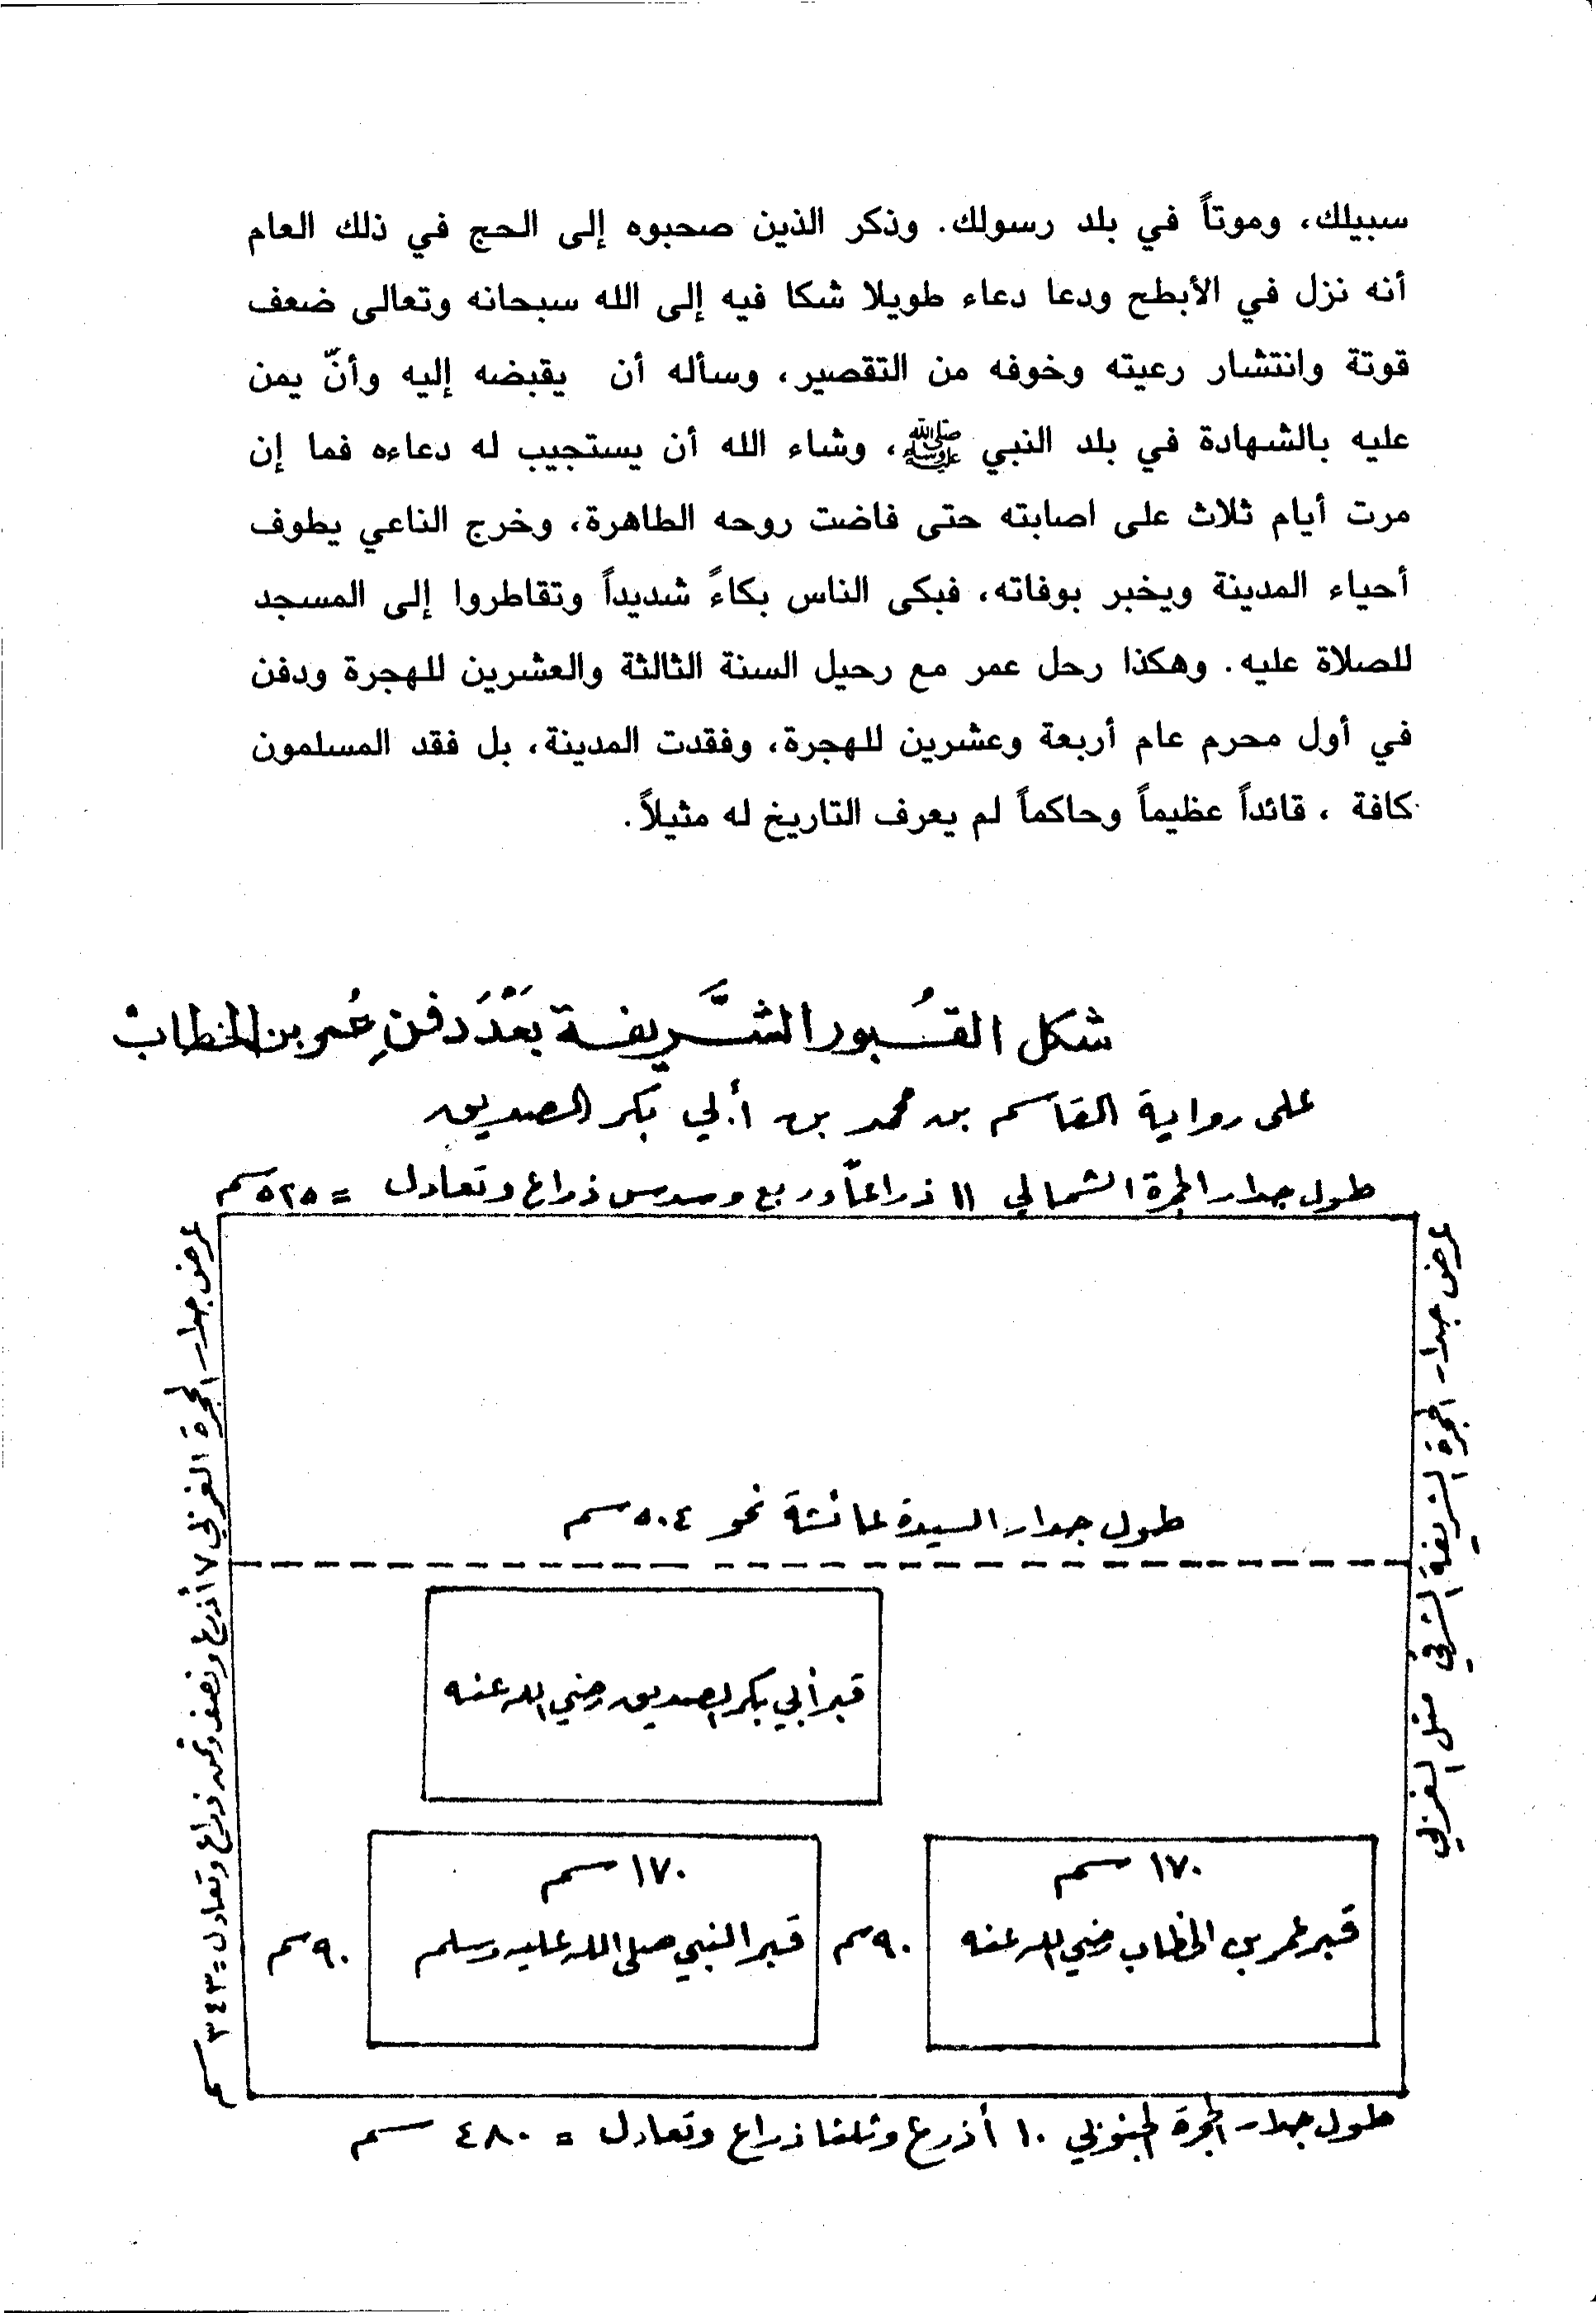 سبيلك، وموتاً في بلد رسولك. وذكر الذين صحبوه إلى الحج في ذلك العام
أنه نزل في الأبطح ودعا دعاء طويلا شكا فيه إلى الله سبحانه وتعالى ضعف
قوتة وانتشار رعيته وخوفه من التقصير، وسأله أن يقبضه إليه وأنّ يمن
عليه بالشهادة في بلد النبي ﷺ، وشاء الله أن يستجيب له دعاءه فما إن
مرت أيام ثلاث على اصابته حتى فاضت روحه الطاهرة، وخرج الناعي يطوف
أحياء المدينة ويخبر بوفاته، فبكى الناس بكاءً شديداً وتقاطروا إلى المسجد
للصلاة عليه. وهكذا رحل عمر مع رحيل السنة الثالثة والعشرين للهجرة ودفن
في أول محرم عام أربعة وعشرين للهجرة، وفقدت المدينة، بل فقد المسلمون
كافة ، قائداً عظيماً وحاكماً لم يعرف التاريخ له مثيلاً.
شكل القُبور الشَّريفة بَعْدَ دفنِ عُمر بن الخطاب
على رواية القاسم بن محمد بن أبي بكر الصديق
طول جدار الحجرة الشمالي ١١ ذراعاً وربع وسدس ذراع وتعادل = ٥٢٥ سم
عرض جدار الحجرة الشريفة الشرقي مثل الغربي
عرض جدار الحجرة الغربي ٧ أذرع ونصف وثمن ذراع وتعادل = ٣٤٣ سم
طول جدار السيدة عائشة نحو ٥٠٤ سم
قبر أبي بكر الصديق رضي الله عنه
١٧٠ سم
قبر عمر بن الخطاب رضي الله عنه
٩٠ سم
١٧٠ سم
قبر النبي صلى الله عليه وسلم
٩٠ سم
طول جدار الحجرة الجنوبي ١٠ أذرع وثلثا ذراع وتعادل = ٤٨٠ سم